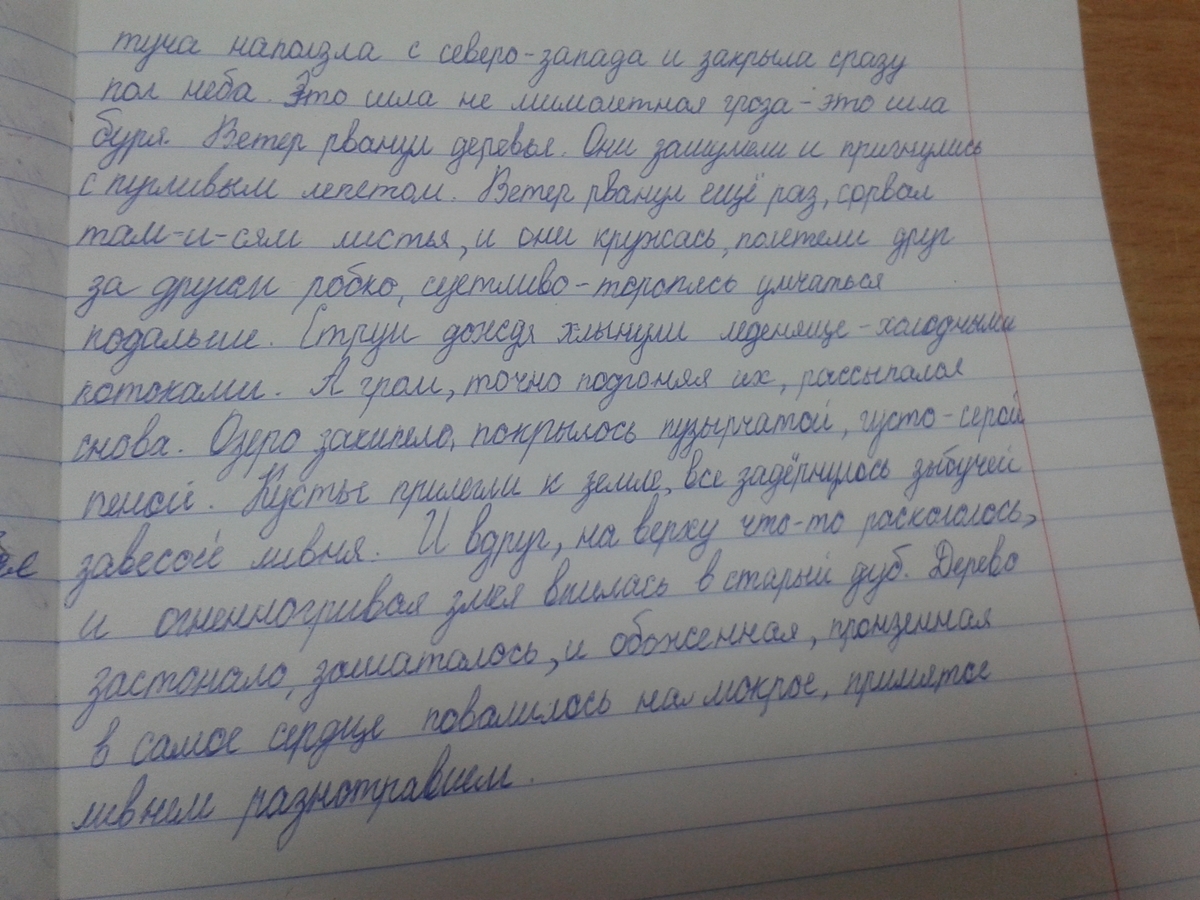 туча наползла с северо-запада и закрыла сразу
пол неба. Это шла не мимолетная гроза - это шла
буря. Ветер рванул деревья. Они зашумели и пригнулись
с пугливым лепетом. Ветер рванул ещё раз, сорвал
там-и-сям листья, и они кружась, полетели друг
за другом робко, суетливо - торопясь умчаться
подальше. Струи дождя хлынули леденяще-холодными
потоками. А гром, точно подгоняя их, рассыпался
снова. Озеро закипело, покрылось пузырчатой, густо-серой
пеной. Кусты прилегли к земле, все задёрнулось зыбучей
завесой ливня. И вдруг, на верху что-то раскололось,
и огненногривая змея впилась в старый дуб. Дерево
застонало, зашаталось, и обоженная, пронзенная
в самое сердце повалилось на мокрое, примятое
ливнем разнотравием.